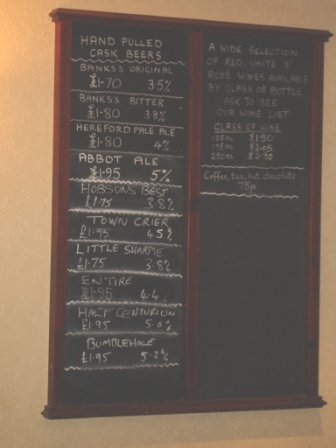 HAND PULLED
CASK BEERS
BANKS'S ORIGINAL
£1.70 3.5%
BANKS'S BITTER
£1.80 3.8%
HEREFORD PALE ALE
£1.80 4%
ABBOT ALE
£1.95 5%
HOBSONS BEST
£1.75 3.8%
TOWN CRIER
£1.95 4.5%
LITTLE SHARPIE
£1.75 3.8%
ENTIRE
£1.95 4.4
HALF CENTURION
£1.95 5.0%
BUMBLEHOLE
£1.95 5.2%
A WIDE SELECTION
OF RED, WHITE &
ROSE WINES AVAILABLE
BY GLASS OR BOTTLE
ASK TO SEE
OUR WINE LIST
GLASS OF WINE
125ML £1.50
175ML £2.05
250ML £2.90
Coffee, tea, hot chocolate
75p